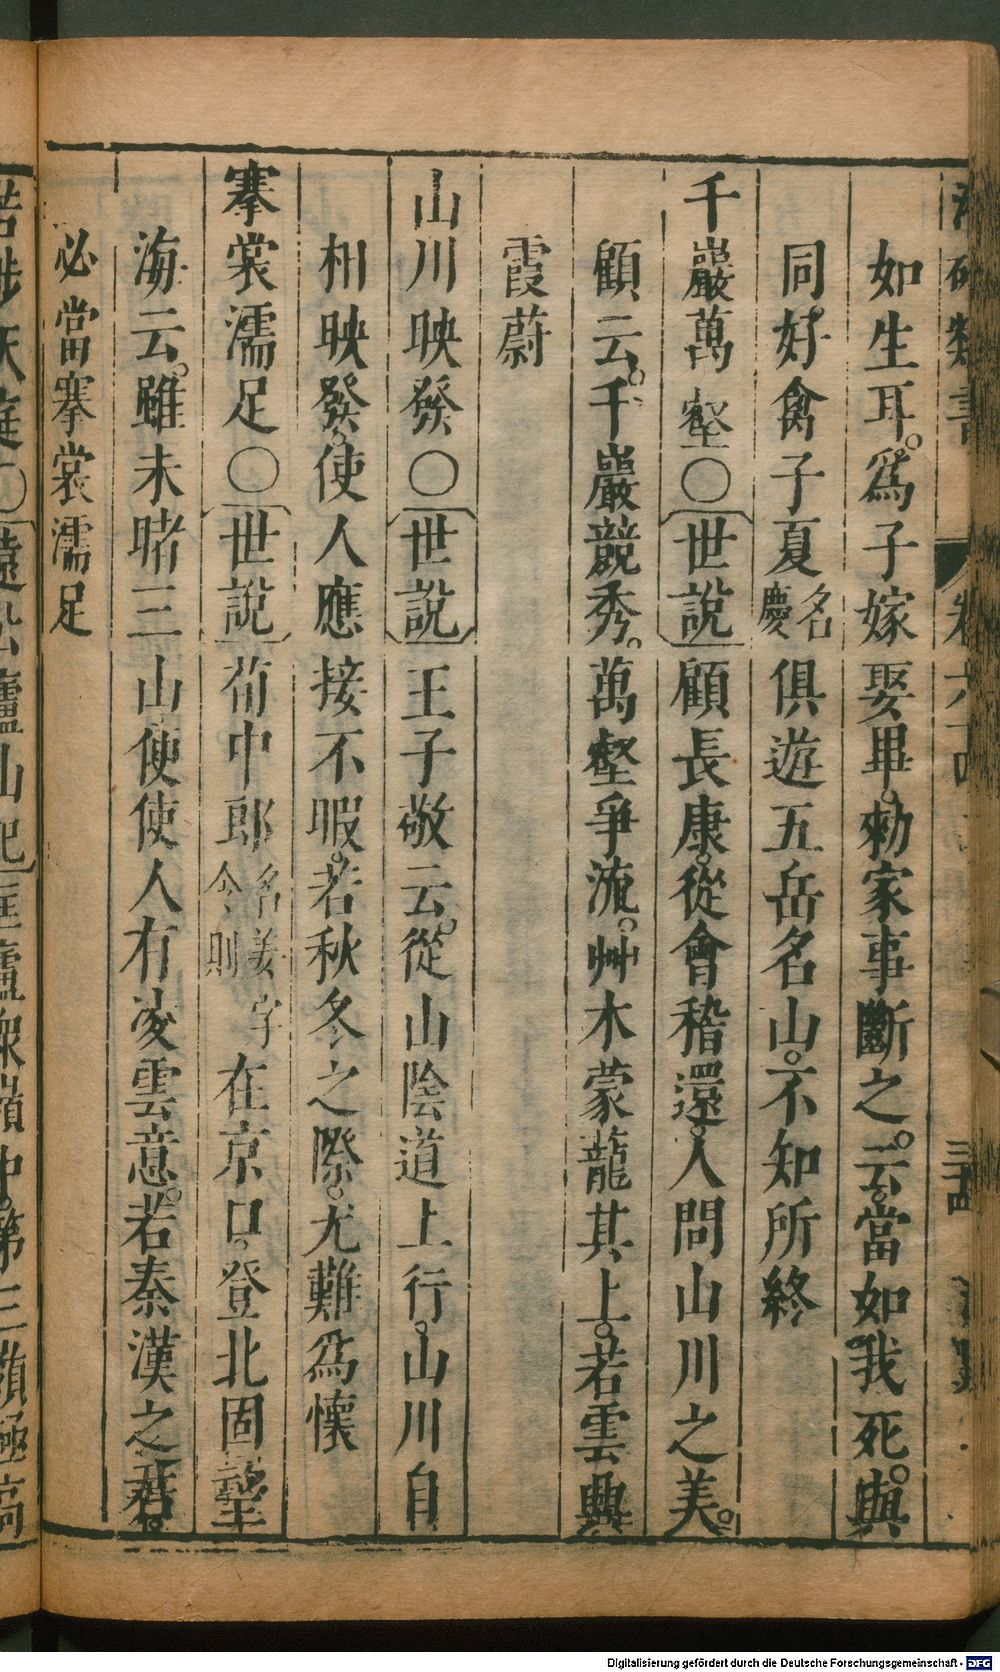 如生耳。爲子嫁娶畢。勑家事斷之。云。當如我死。與
同好禽子夏名慶俱遊五岳名山。不知所終
千巖萬壑〇世說顧長康。從會稽還。人問山川之美。
顧云。千巖競秀。萬壑爭流。艸木蒙蘢其上。若雲興
霞蔚
山川映發〇世說王子敬云。從山陰道上行。山川自
相映發。使人應接不暇。若秋冬之際。尤難爲懷
搴裳濡足〇世說荀中郎名羨字令則在京口。登北固望
海云。雖未睹三山便使人有凌雲意。若秦漢之君。
必當搴裳濡足
Digitalisierung gefördert durch die Deutsche Forschungsgemeinschaft - DFG